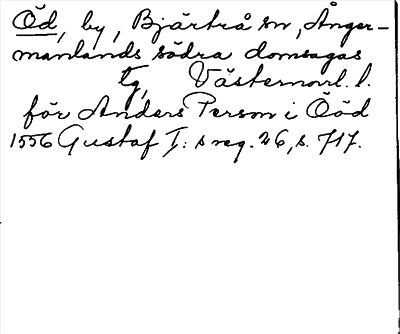 Öd, by, Bjärtrå sn, Ånger-
manlands södra domsagas
tg, Västernorrl. l.
för Anders Person i Ööd
1556 Gustaf I: s reg. 26, s. 717.